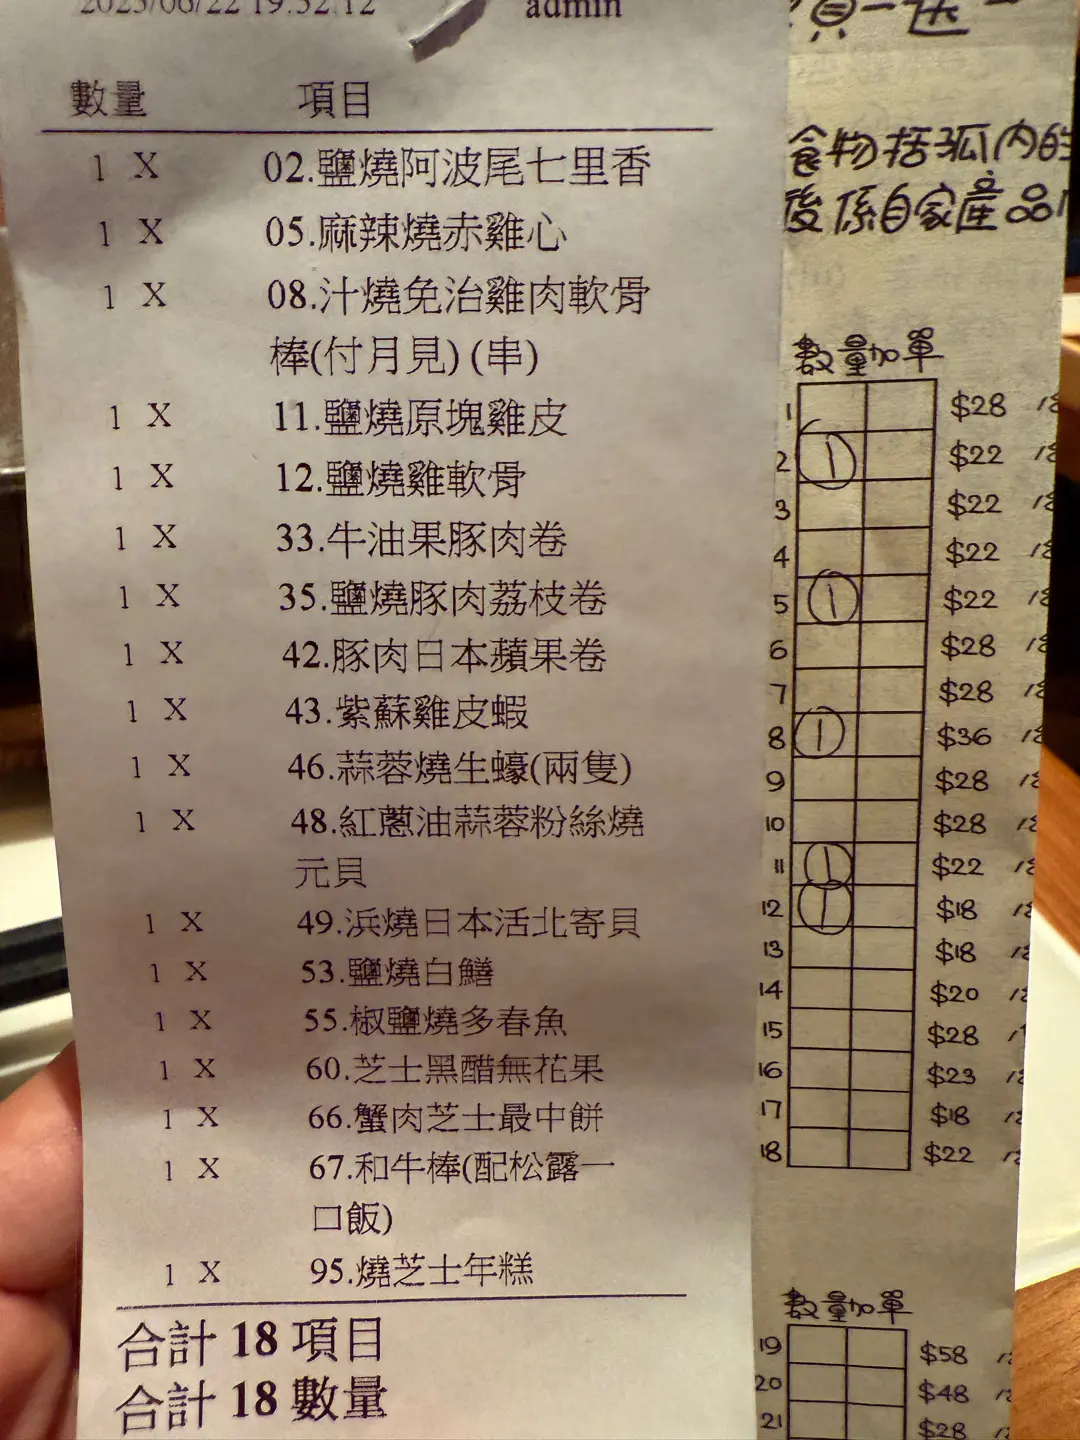 2023/06/22 19:52:12 admin
數量 項目
1 X 02.鹽燒阿波尾七里香
1 X 05.麻辣燒赤雞心
1 X 08.汁燒免治雞肉軟骨
棒(付月見) (串)
1 X 11.鹽燒原塊雞皮
1 X 12.鹽燒雞軟骨
1 X 33.牛油果豚肉卷
1 X 35.鹽燒豚肉荔枝卷
1 X 42.豚肉日本蘋果卷
1 X 43.紫蘇雞皮蝦
1 X 46.蒜蓉燒生蠔(兩隻)
1 X 48.紅蔥油蒜蓉粉絲燒
元貝
1 X 49.浜燒日本活北寄貝
1 X 53.鹽燒白鱔
1 X 55.椒鹽燒多春魚
1 X 60.芝士黑醋無花果
1 X 66.蟹肉芝士最中餅
1 X 67.和牛棒(配松露一
口飯)
1 X 95.燒芝士年糕
合計 18 項目
合計 18 數量
買一送一
食物括弧內的
後係自家產品
數量加單
1 $28
2 1 $22
3 $22
4 $22
5 1 $22
6 $28
7 $28
8 1 $36
9 $28
10 $28
11 1 $22
12 1 $18
13 $18
14 $20
15 $28
16 $23
17 $18
18 $22
數量加單
19 $58
20 $48
21 $28